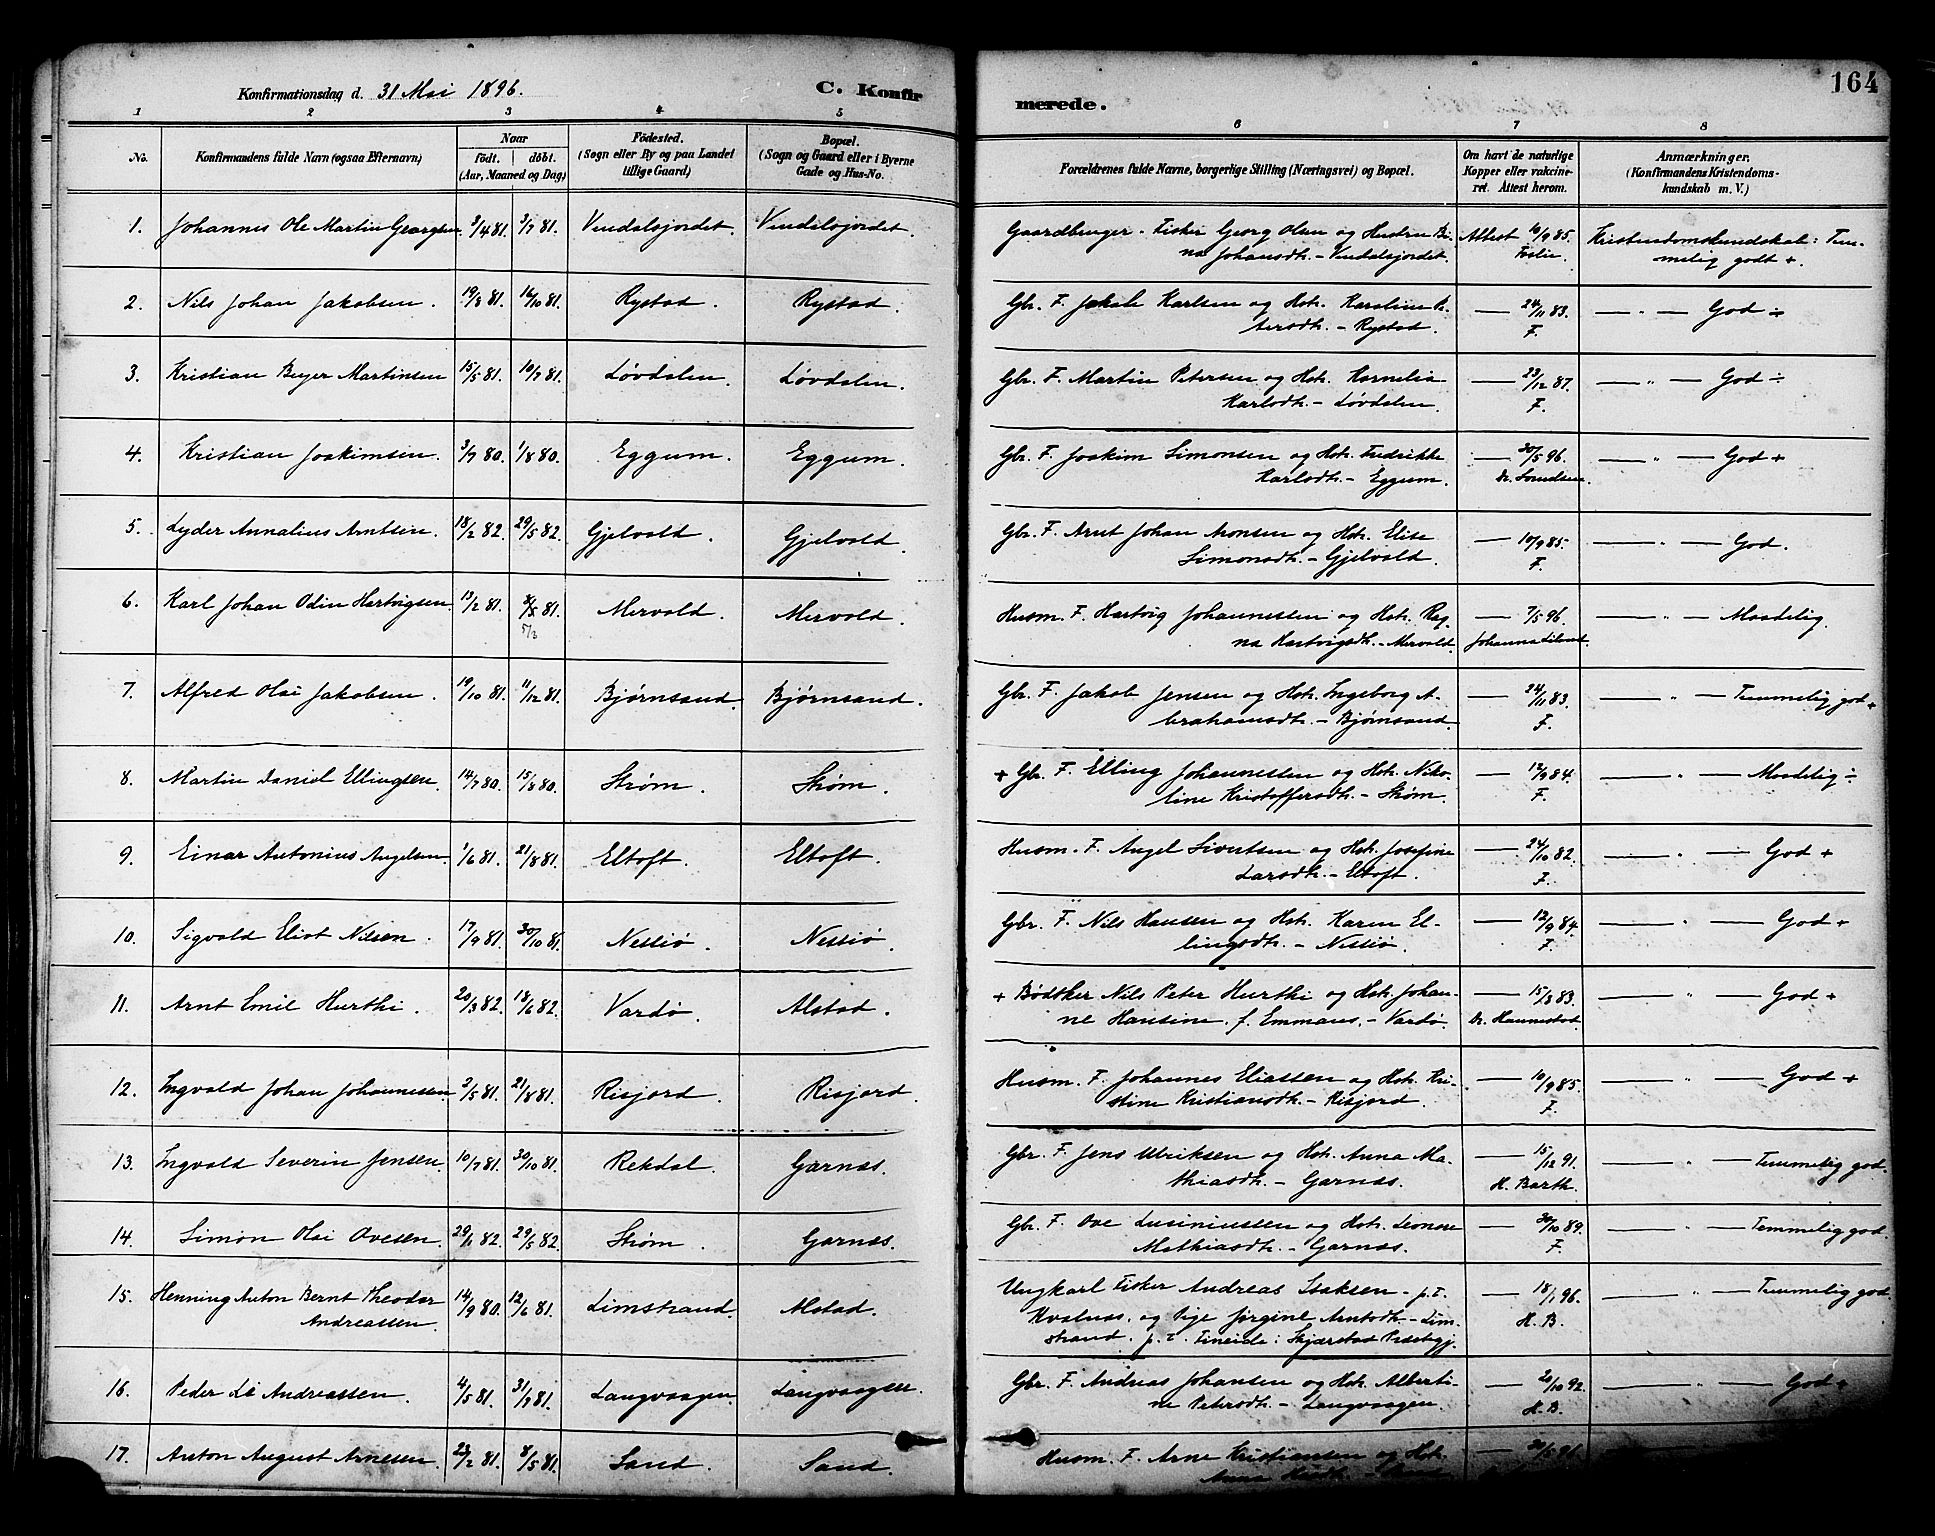 164
Konfirmationsdag d. 31 Mai 1896. C. Konfirmerede.
1 2 3 4 5 6 7 8
No. | Konfirmandens fulde Navn (ogsaa Efternavn) | Naar födt. | döbt. (Aar, Maaned og Dag) | Födested. (Sogn eller By og paa Landet tillige Gaard) | Bopæl. (Sogn og Gaard eller i Byerne Gade og Hus-No. | Forældrenes fulde Navne, borgerlige Stilling (Næringsvei) og Bopæl. | Om havt de naturlige Kopper eller vakcineret. Attest herom. | Anmærkninger. (Konfirmandens Kristendomskundskab m. V.)
1. Johannis Ole Martin Georgsen. 2/4 81. 3/7 81. Vindalsjordet. Vindalsjordet. Gaardbruger. Fisker Georg Olsen og Hustru Bi-
na Johansdtr. - Vindalsjordet. Attest 10/9 85. Kristendomskundskab: Tem-
melig godt +.
2. Nils Johan Jakobsen. 19/8 81. 16/10 81. Rystad. Rystad. Gbr. F. Jakob Karlsen og Hstr. Karoline Pe-
tersdtr. - Rystad. — 24/11 83. F. — " — God ÷
3. Kristian Beyer Martinsen 15/5 81. 10/7 81. Løvdalen. Løvdalen. Gbr. F. Martin Petersen og Hstr. Kornelia
Karlsdtr. - Løvdalen. — 23/12 87. F. — " — God ÷
4. Kristian Joakimsen. 3/7 80. 1/8 80. Eggum. Eggum. Gbr. F. Joakim Simonsen og Hstr. Fredrikke
Karlsdtr. - Eggum. — 30/5 96. Dr. — " — God +
5. Lyder Annalius Arntsen. 18/2 82. 29/5 82. Gjelvold. Gjelvold. Gbr. F. Arnt Johan Monsen og Hstr. Elise
Simonsdtr. - Gjelvold. — 10/9 85. F. — " — God.
6. Karl Johan Odin Hartvigsen. 13/2 81. 81. 5/3 Mervold. Mervold. Husm. F. Hartvig Johannessen og Hstr. Rag-
na Hartvigsdtr. - Mervold. — 7/5 96. Johanna — " — Maadelig.
7. Alfred Olai Jakobsen. 19/10 81. 11/12 81. Bjørnsand. Bjørnsand. Gbr. F. Jakob Jensen og Hstr. Ingeborg A-
brahamsdtr. - Bjørnsand. — 24/11 83. F. — " — Temmelig god +
8. Martin Daniel Ellingsen. 14/7 80. 15/8 80. Strøm. Strøm. + Gbr. F. Elling Johannessen og Hstr. Niko-
line Kristoffersdtr. - Strøm. — 12/9 84. F. — " — Maadelig ÷
9. Einar Antonius Angelsen. 1/6 81. 21/8 81. Eltoft. Eltoft. Husm. F. Angel Sivertsen og Hstr. Josefine
Larsdtr. - Eltoft. — 24/10 82. F. — " — God +
10. Sigvald Eliot Nilsen. 17/9 81. 30/10 81. Nessiø. Nessiø. Gbr. F. Nils Hansen og Hstr. Karen El-
lingsdtr. - Nessiø. — 12/9 84. F. — " — God +
11. Arnt Emil Hurthi. 20/3 82. 18/6 82. Vardø. Alstad. + Bødtker Nils Peter Hurthi og Hstr. Johan-
ne Hansine. f. Emmaus. - Vardø. — 15/3 83. Dr. Hannestad. — " — God +
12. Ingvald Johan Johannessen. 2/5 81. 21/8 81. Risjord. Risjord. Husm. F. Johannes Eliassen og Hstr. Kri-
stine Kristiansdtr. - Risjord. — 10/9 85. F. — " — God +
13. Ingvald Severin Jensen. 10/7 81. 30/10 81. Rekdal. Garnæs. Gbr. F. Jens Ulriksen og Hstr. Anna Ma-
thiasdtr. - Garnæs. — 15/12 91. H. Barth. — " — Temmelig god.
14. Simon Olai Ovesen. 29/1 82. 29/5 82. Strøm. Garnæs. Gbr. F. Ove Lusiniussen og Hstr. Leonore
Mathiasdtr. - Garnæs. — 30/10 89. F. — " — Temmelig god.
15. Henning Anton Bernt Theodor
Andreassen. 14/9 80. 12/6 81. Limstrand. Alstad. Ungkarl Fisker Andreas Isaksen - p.T.
Kvalnæs, og Pige Jørgine Arntsdtr. - Lim-
strand. p.T. Fineide i Skjærstad Præstegj. — 18/1 96. H. B. — " — Temmelig god.
16. Peder Li Andreassen. 4/5 81. 31/7 81. Langvaagen. Langvaagen. Gbr. F. Andreas Johansen og Hstr. Alberti-
ne Petersdtr. - Langvaagen. — 20/10 92. H. B. — " — God +
17. Anton August Arnesen. 23/2 81. 8/5 81. Sand. Sand. Husm. F. Arne Kristiansen og Hstr.
Anna